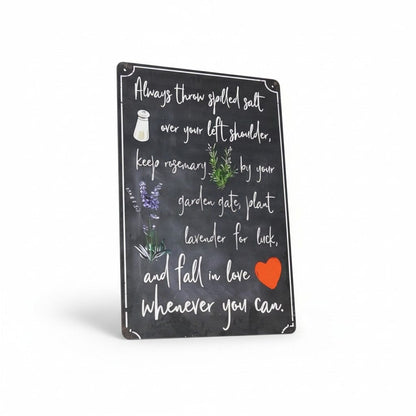 Always throw spilled salt
over your left shoulder,
keep rosemary by your
garden gate, plant
lavender for luck,
and fall in love
whenever you can.